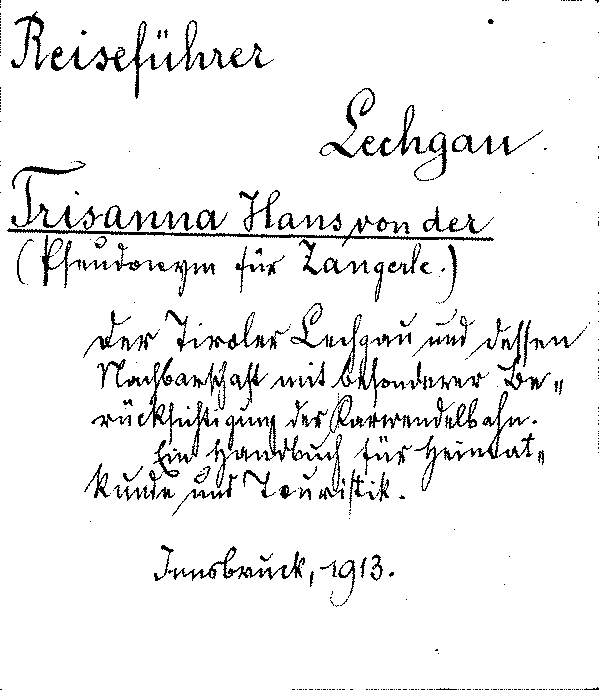 Reiseführer
Lechgau
Trisanna Hans von der
(Pseudonym für Zangerle.)
Der Tiroler Lechgau und dessen
Nachbarschaft mit besonderer Be-
rücksichtigung der Karwendelbahn.
Ein Handbuch für Heimat-
kunde und Touristik.
Innsbruck, 1913.